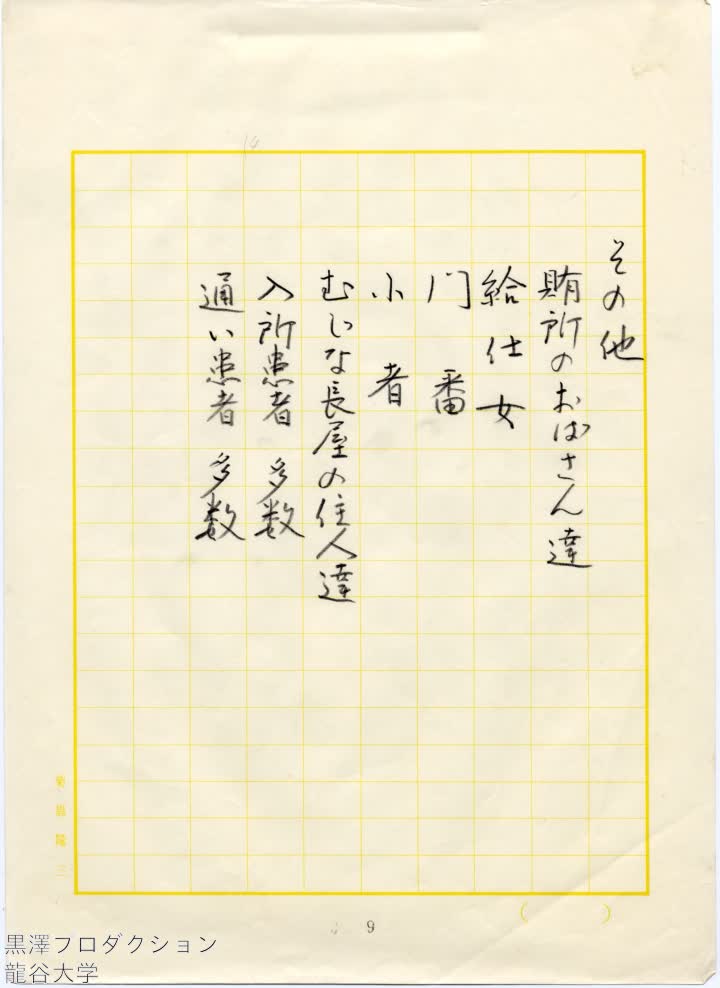 その他
賄所のおばさん達
給仕女
門番
小者
むじな長屋の住人達
入所患者 多数
通い患者 多数
14
菊島隆三
( )
9
黒澤フロダクション
龍谷大学